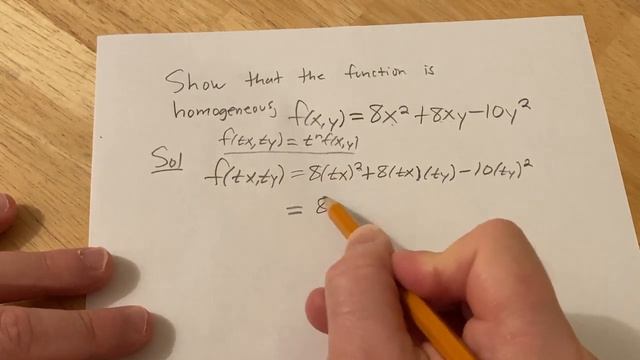 Show that the function is
homogeneous, f(x,y) = 8x² + 8xy - 10y²
f(tx,ty) = tⁿf(x,y)
Sol f(tx,ty) = 8(tx)² + 8(tx)(ty) - 10(ty)²
= 8